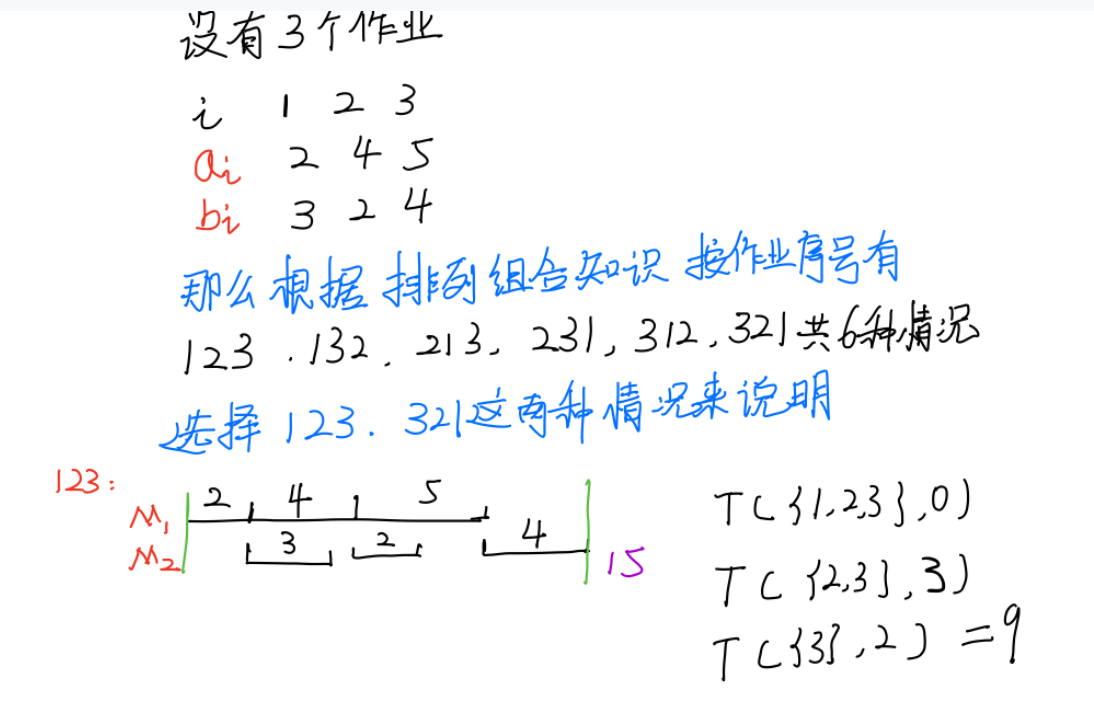 设有3个作业
i 1 2 3
ai 2 4 5
bi 3 2 4
那么根据 排列组合知识 按作业序号有
123 . 132 . 213, 231, 312, 321共6种情况
选择 123 . 321这两种情况来说明
123:
M1 2 4 5
M2 3 2 4
15
T({1,2,3},0)
T({2,3},3)
T({3},2)=9